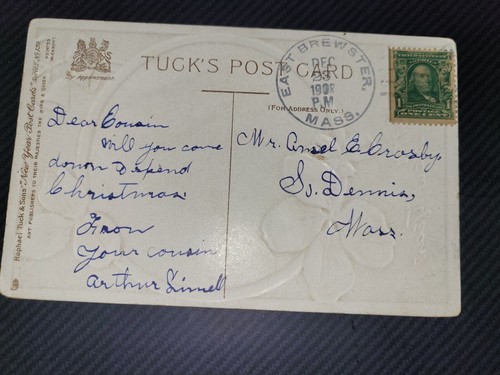 By Appointment
TUCK'S POST CARD
(FOR ADDRESS ONLY.)
EAST BREWSTER,
DEC
23
1908
P.M.
MASS.
1 1
Dear Cousin
Will you come
down & spend
Christmas.
From
your cousin
Arthur
Mr. E. Crosby
So. Dennis,
Mass.
Raphael Tuck & Sons' "New Year" Post Cards
ART PUBLISHERS TO THEIR MAJESTIES THE KING & QUEEN